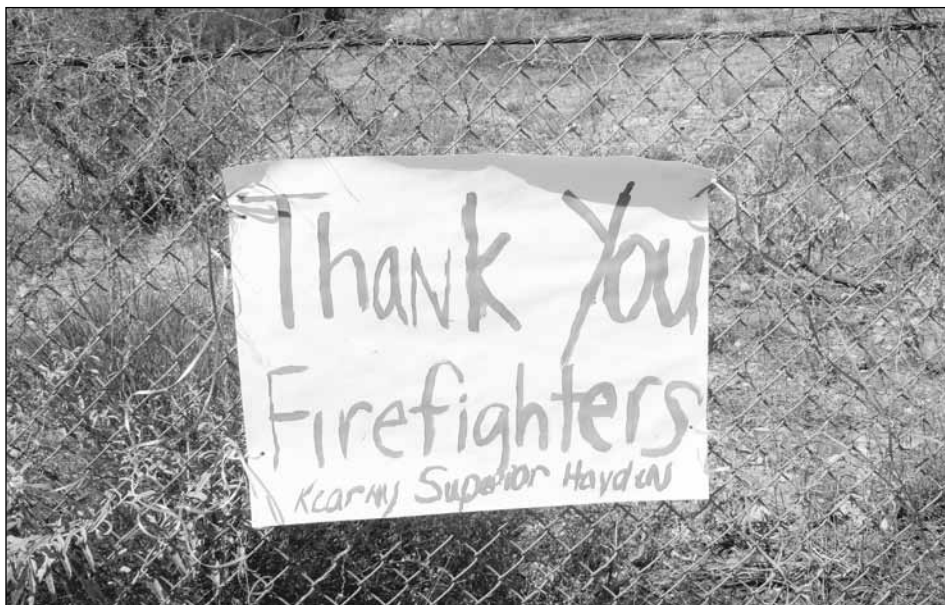 Thank You
Firefighters
Kearny Superior Hayden